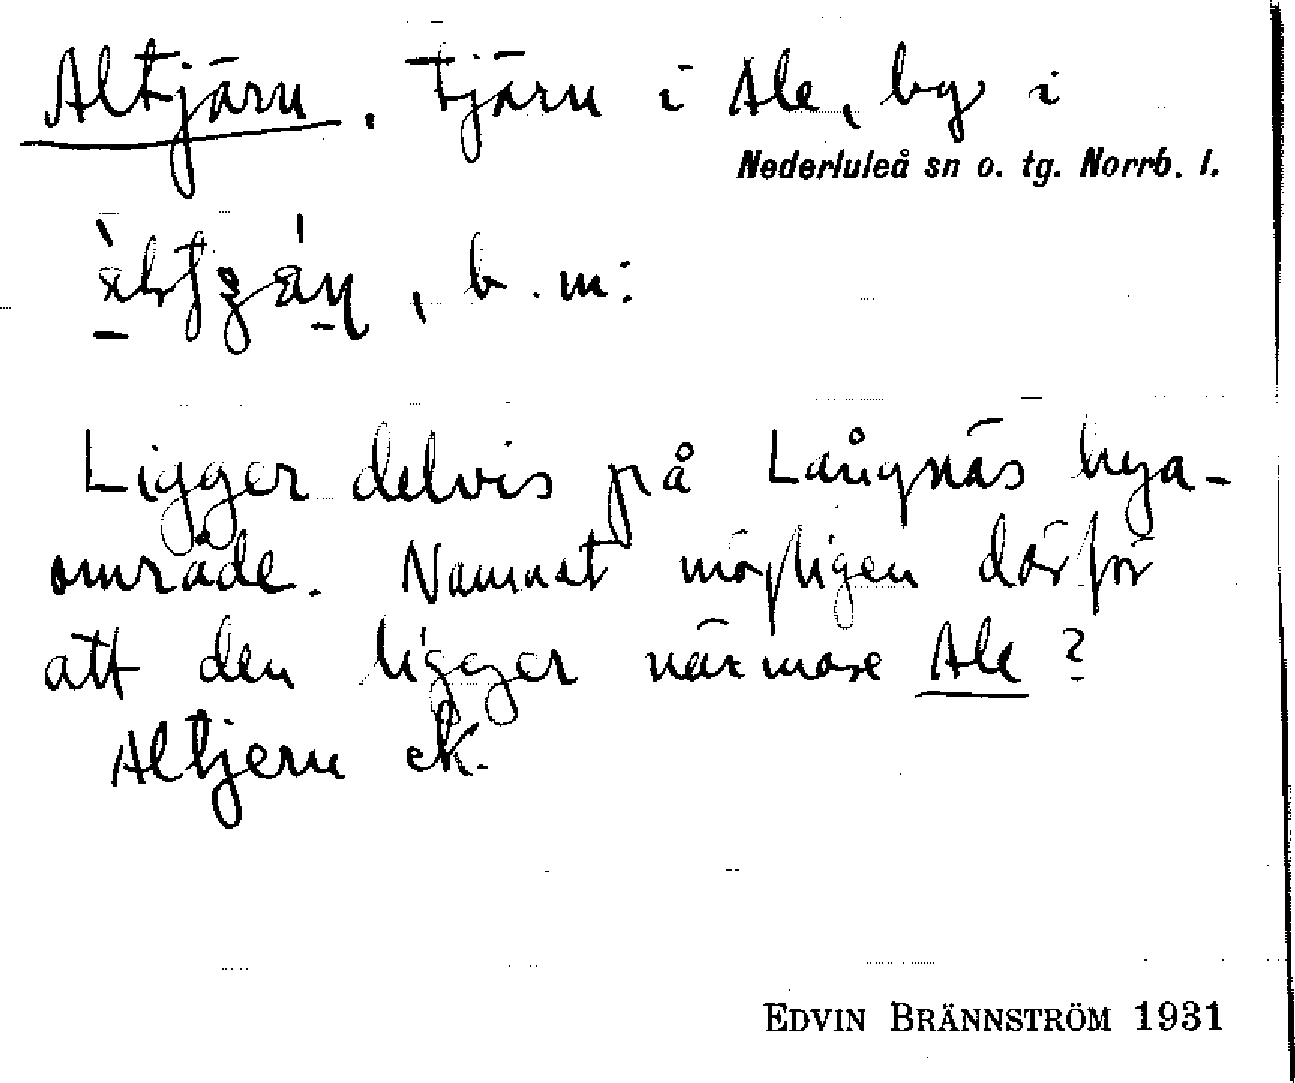 Altjärn, Tjärn i Ale, by i
Nederluleå sn o. tg. Norrb. l.
, b. m:
Ligger delvis på Långnäs bya-
område. Namnet möjligen därför
att den ligger närmare Ale ?
Altjern ek.
EDVIN BRÄNNSTRÖM 1931